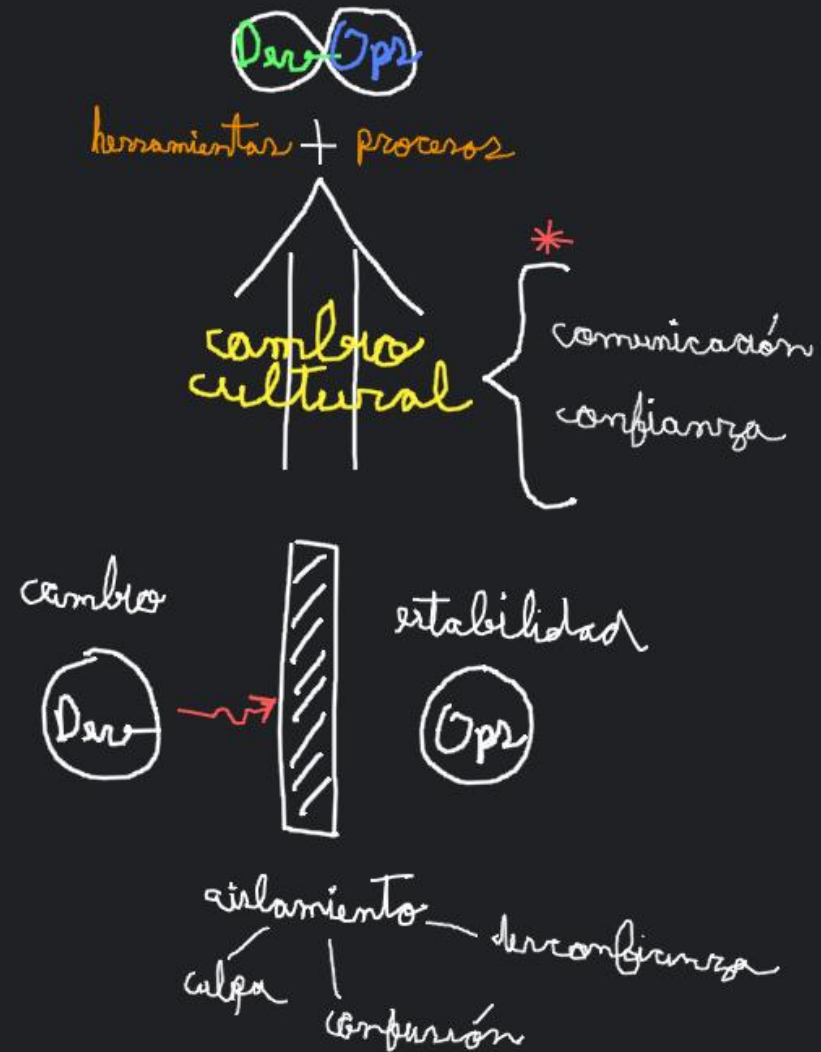 DevOps
herramientas + procesos
*
cambio
cultural
comunicación
confianza
cambio
estabilidad
Dev
Ops
aislamiento
desconfianza
culpa
confusión